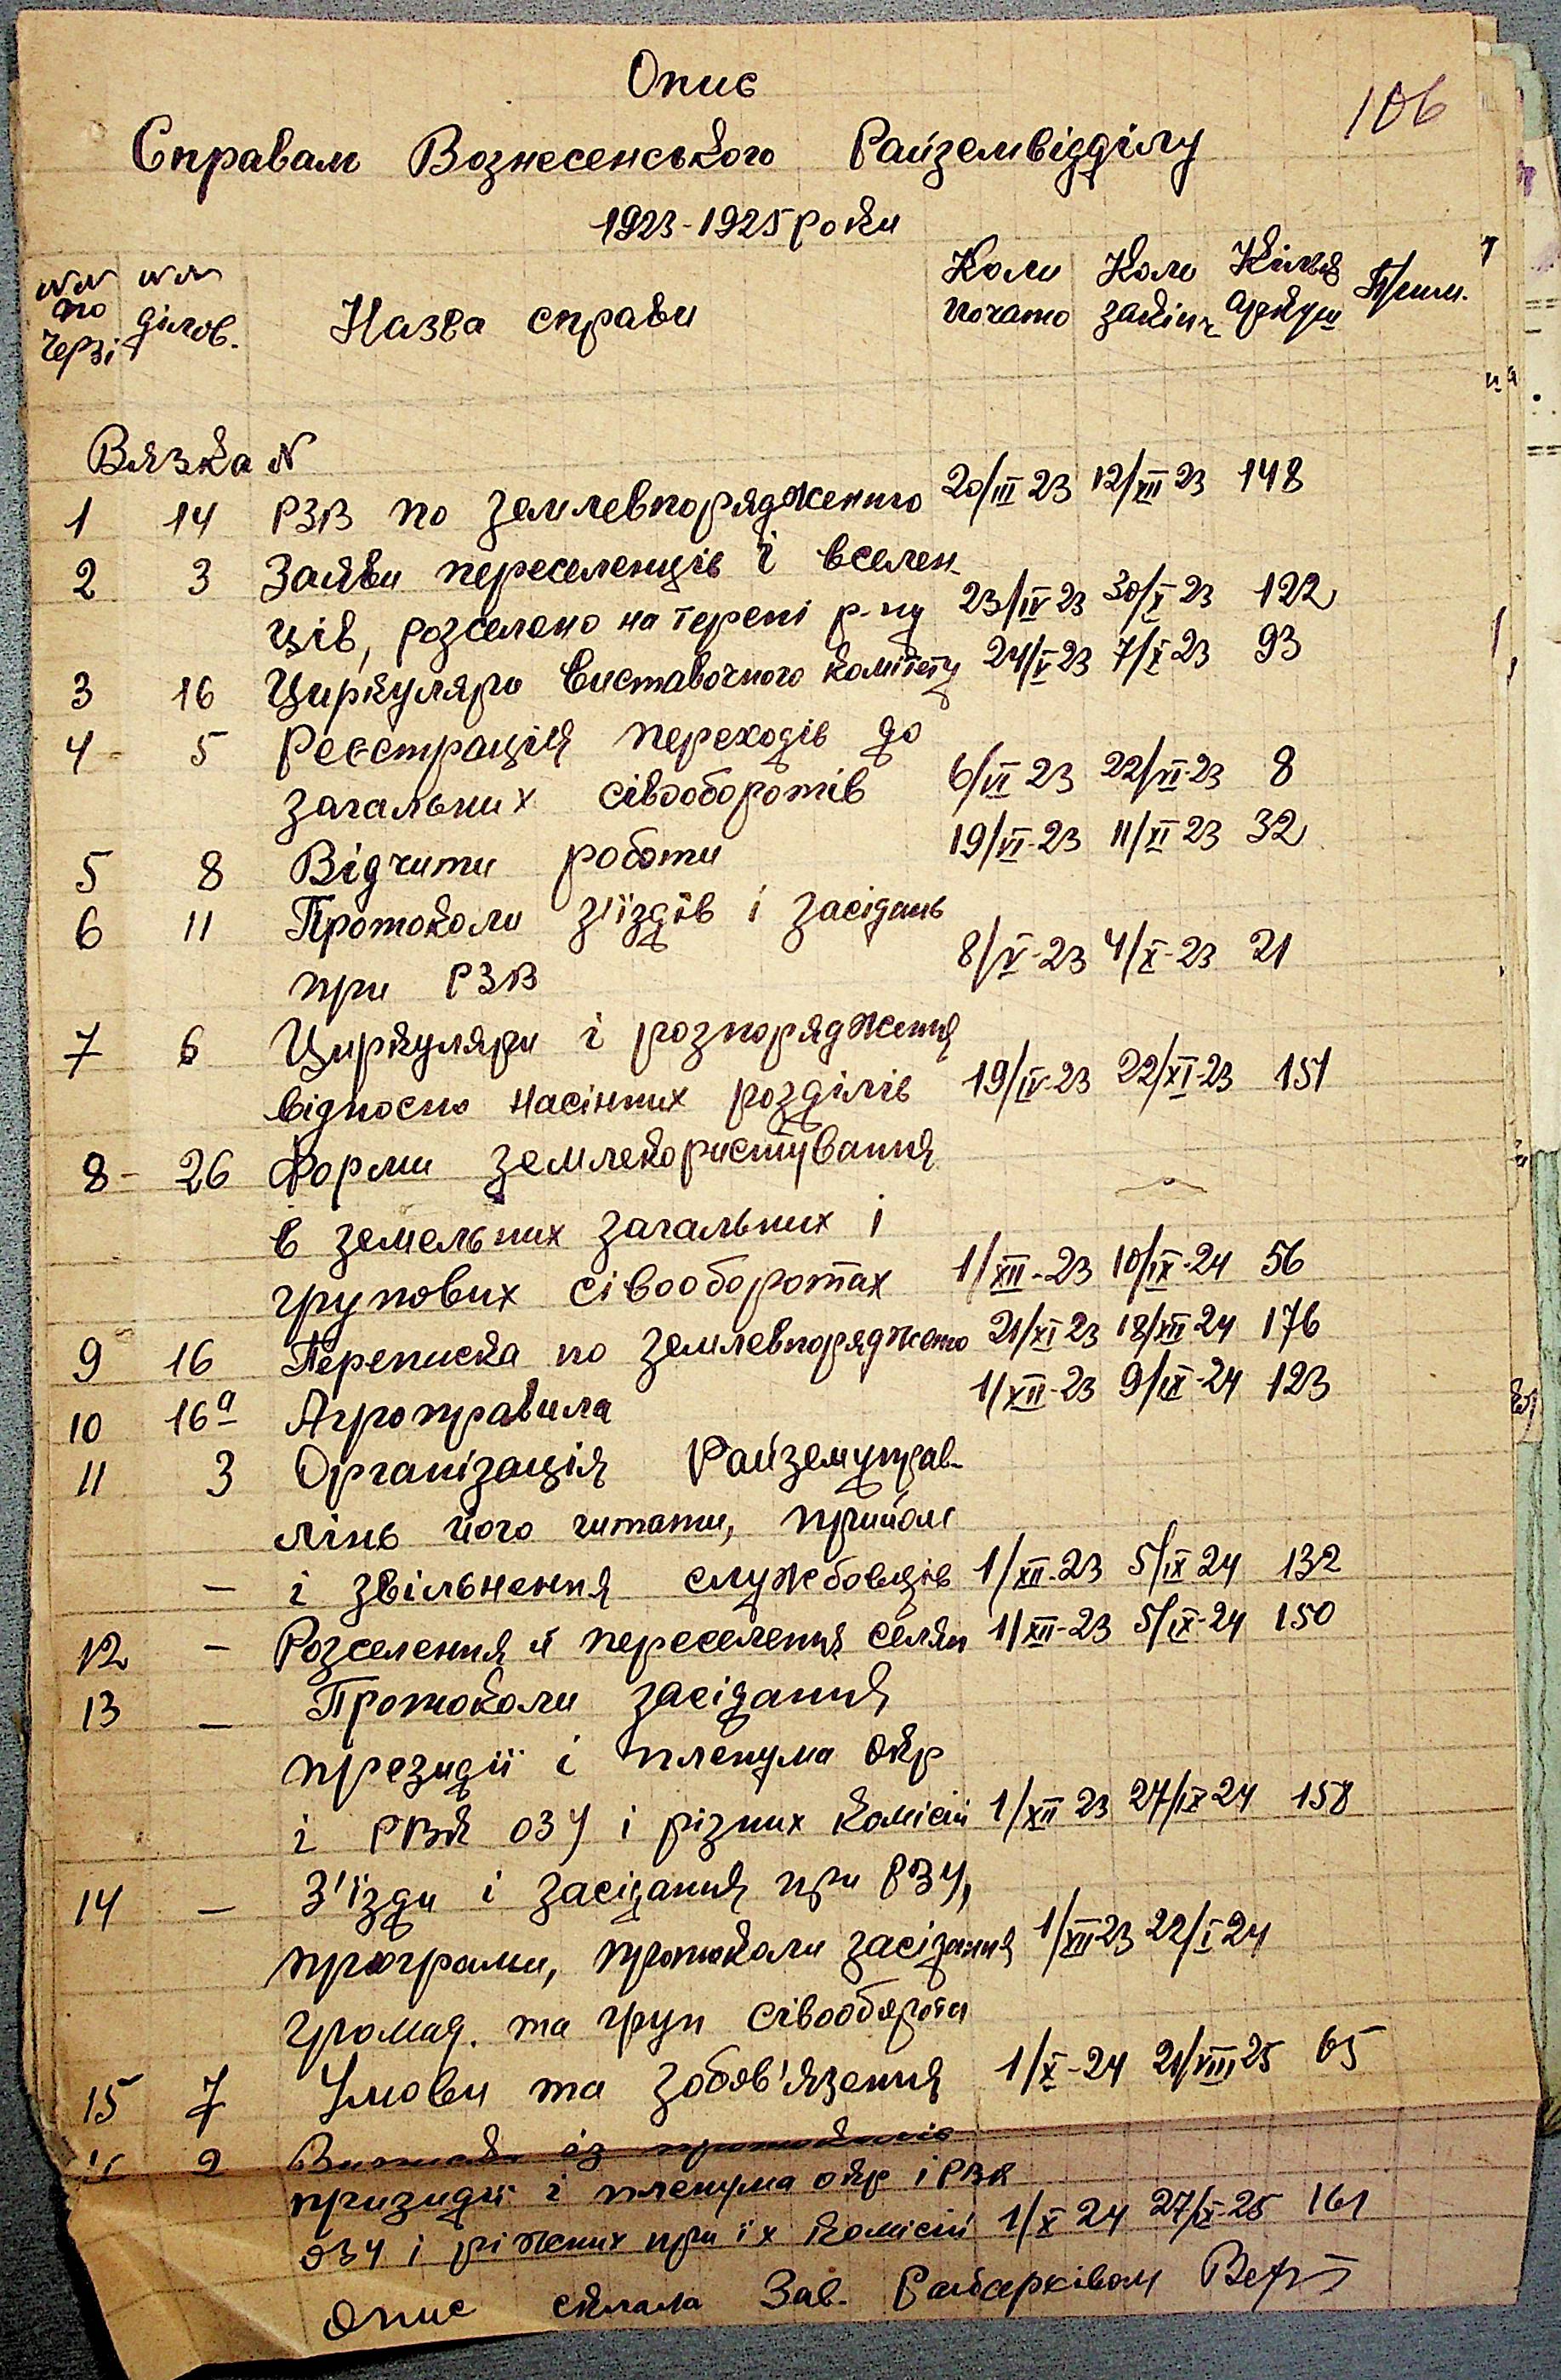 106
Опис
Справам Вознесенського Райземвідділу
1923-1925 роки
№№ по черзі №№ ділов. Назва справи Коли почато Коли закінч Кільк аркуш Прим.
Вязка №
1 14 РЗВ по землевпорядженню 20/III 23 12/XII 23 148
2 3 Заяви переселенців і вселен-
ців, розселено на терені р-ну 23/IV 23 30/X 23 122
3 16 Циркуляри виставочного комітету 24/V 23 7/X 23 93
4 - 5 Реєстрація переходів до
загальних сівооборотів 6/VI 23 22/VI-23 8
5 8 Відчити роботи 19/VI-23 11/XI 23 32
6 11 Протоколи з'їздів і засідань
при РЗВ 8/V-23 4/X-23 21
7 6 Циркуляри і розпорядження
відносно насінних розділів 19/IV-23 22/XI-23 151
8 - 26 Форми землекористування
в земельних загальних і
групових сівооборотах 1/XII-23 10/IX-24 56
9 16 Переписка по землевпорядженю 21/XI 23 18/XII 24 176
10 16а Агроправила 1/XII-23 9/IX-24 123
11 3 Організація Райземуправ-
лінь його читати, прийом
- і звільнення службовців 1/XII-23 5/IX 24 132
12 - Розселення й переселення селян 1/XII-23 5/IX-24 150
13 - Протоколи засідання
президії і пленума окр
і РВК ОЗУ і різних комісій 1/XII 23 27/IX-24 158
14 - З'їзди і засідання при РЗУ,
програми, протоколи засідання 1/XII 23 22/I 24
громад. та груп сівооборота
15 7 Умови та зобов'язення 1/X-24 21/VIII 25 65
9 Виписки із протоколів
призидії і пленума окр і РВК
ОЗУ і ріжних при їх комісій 1/X 24 27/IX-25 161
Опис склала Зав. Райархівом